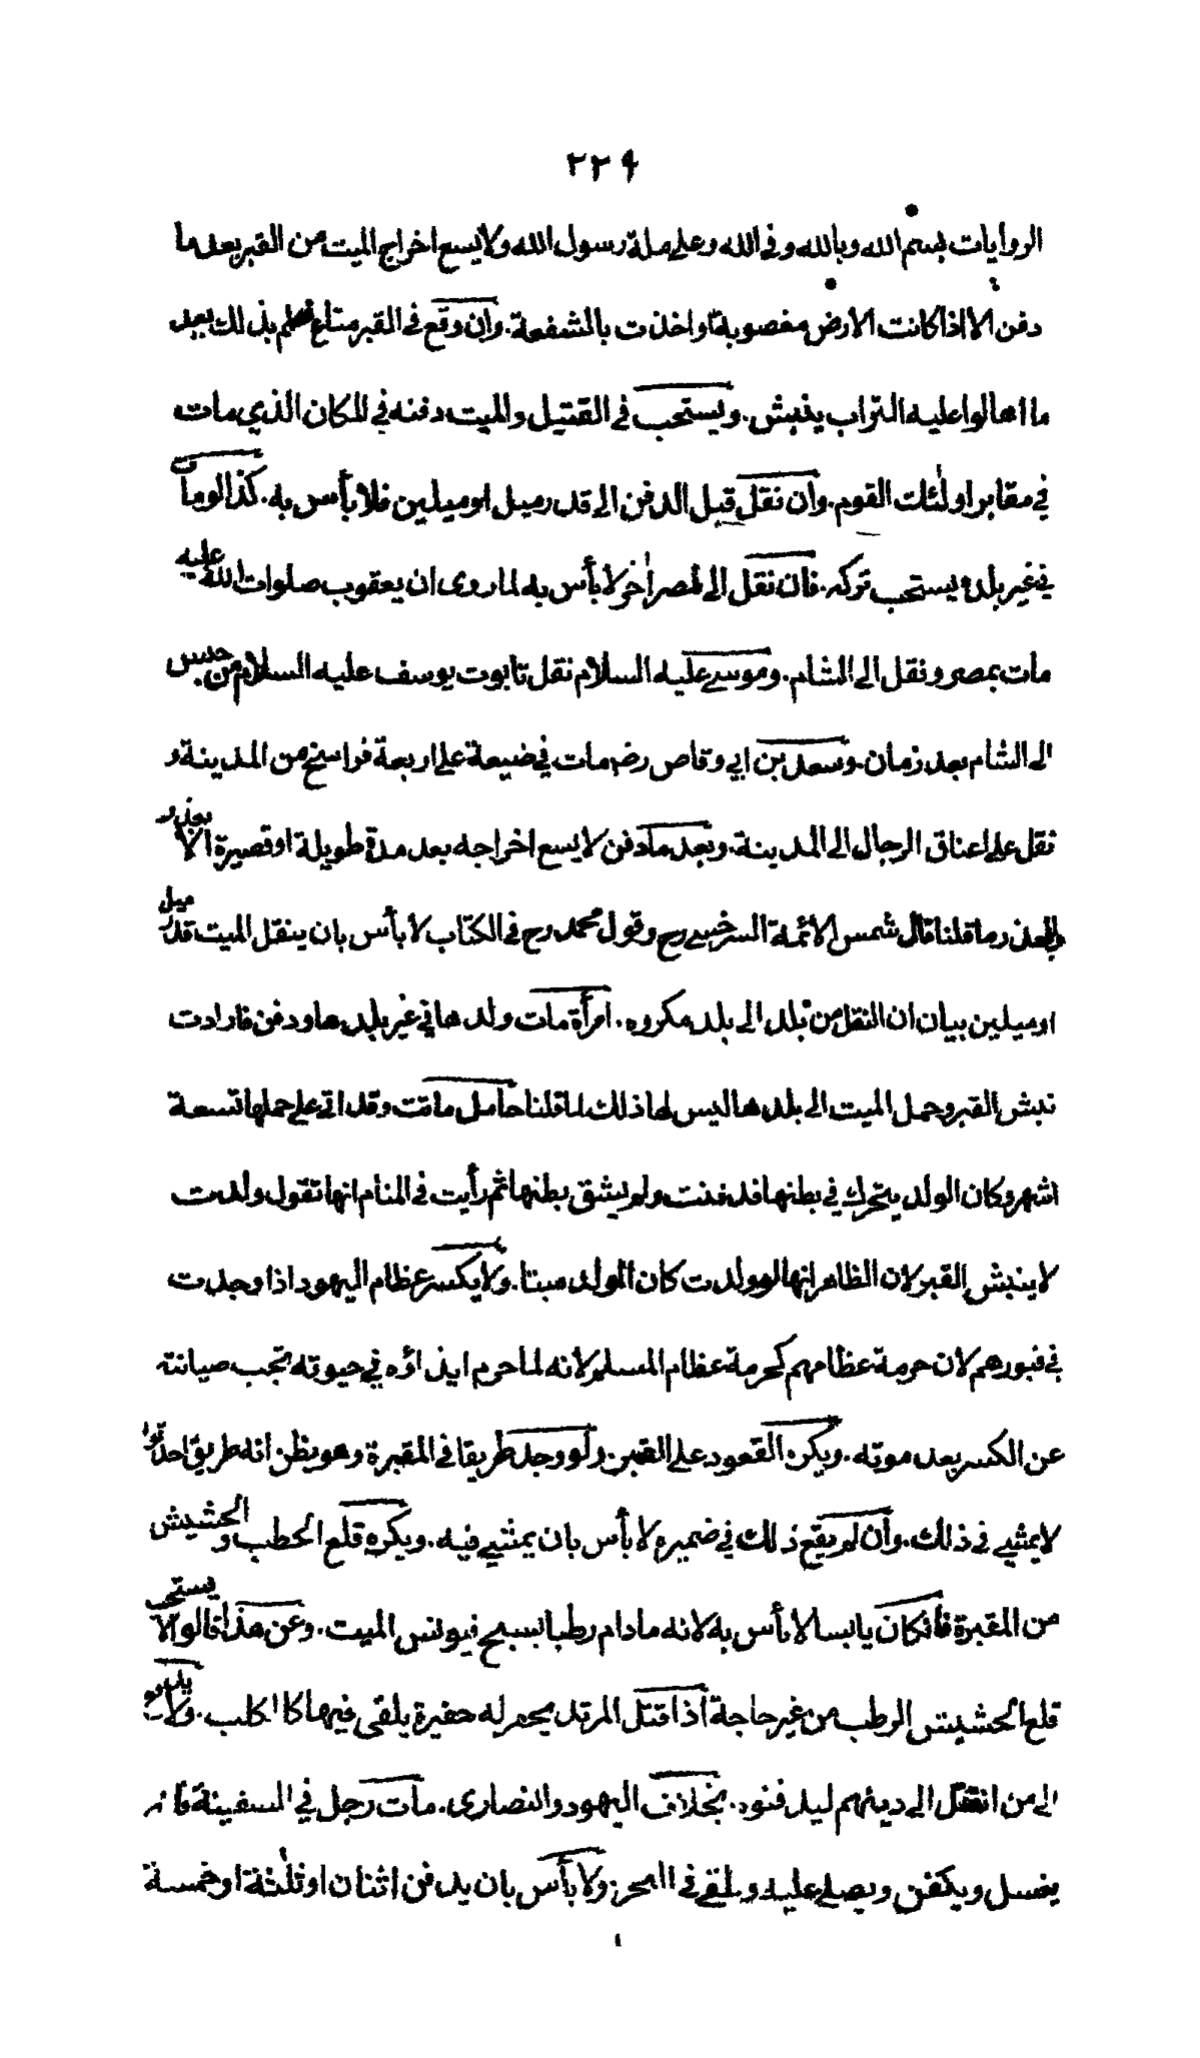 ٢٢٩
الروايات بسم الله وبالله وفي الله وعلى ملة رسول الله ولا يسع اخراج الميت من القبر بعد ما
دفن الا اذا كانت الارض مغصوبة او اخذت بالشفعة. وان وقع في القبر متاع فعلم بذلك بعد
ما اهالوا عليه التراب ينبش. ويستحب في القتيل والميت دفنه في المكان الذي مات
في مقابر اولئك القوم. وان نقل قبل الدفن الى قدر ميل او ميلين فلا بأس به. كذا لو مات
في غير بلده يستحب تركه. فان نقل الى مصر اخر لا بأس به لما روى ان يعقوب صلوات الله عليه
مات بمصر ونقل الى الشام. وموسى عليه السلام نقل تابوت يوسف عليه السلام من
الى الشام بعد زمان. وسعد بن ابي وقاص رض مات في ضيعة على اربعة فراسخ من المدينة و
نقل على اعناق الرجال الى المدينة. وبعد ما دفن لا يسع اخراجه بعد مدة طويلة او قصيرة الا بعذر
والعذر ما قلنا قال شمس الائمة السرخسي رح وقول محمد رح في الكتاب لا بأس بان ينقل الميت قدر ميل
او ميلين بيان ان النقل من بلد الى بلد مكروه. امرأة مات ولدها في غير بلدها ودفن فارادت
نبش القبر وحمل الميت الى بلدها ليس لها ذلك لما قلنا حامل ماتت وقد اتى على حملها تسعة
اشهر وكان الولد يتحرك في بطنها فدفنت ولم يشق بطنها ثم رأيت في المنام انها تقول ولدت
لا ينبش القبر لان الظاهر انها لو ولدت كان المولد ميتا. ولا يكسر عظام اليهود اذا وجدت
في قبورهم لان حرمة عظامهم كحرمة عظام المسلم لانه لما حرم ايذاؤه في حيوته تجب صيانته
عن الكسر بعد موته. ويكره القعود على القبر. ولو وجد طريقا في المقبرة وهو يظن انه طريق احدثوا
لا يمشي في ذلك. وان لم يقع ذلك في ضميره لا بأس بان يمشي فيه. ويكره قلع الحطب والحشيش
من المقبرة فان كان يابسا لا بأس به لانه ما دام رطبا يسبح فيونس الميت. وعن هذا قالوا لا يستحب
قلع الحشيش الرطب من غير حاجة اذا قتل المرتد يحفر له حفيرة يلقى فيها كالكلب. ولا يدفع
الى من انتقل الى دينهم ليدفنوه. بخلاف اليهود والنصارى. مات رجل في السفينة فانه
يغسل ويكفن ويصلى عليه ويلقى في البحر. ولا بأس بان يدفن اثنان او ثلثة او خمسة